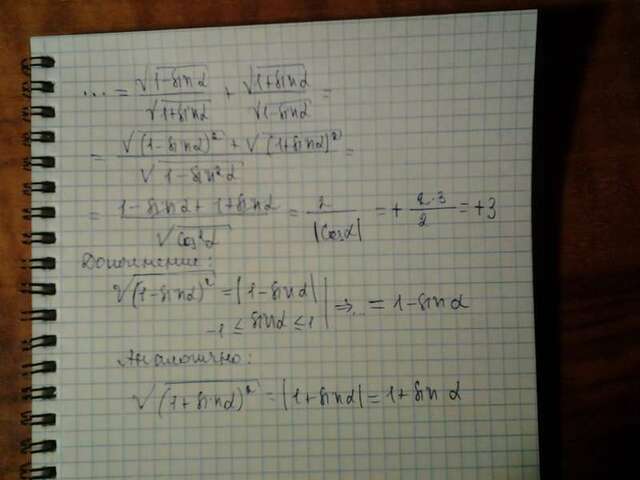 ... = √(1-sinα)/√(1+sinα) + √(1+sinα)/√(1-sinα) =
= (√(1-sinα)² + √(1+sinα)²)/√(1-sin²α) =
= (1-sinα+1+sinα)/√(cos²α) = 2/|cosα| = + 2·3/2 = +3
Дополнение:
√(1-sinα)² = |1-sinα| | ⇒ ... = 1-sinα
-1 ≤ sinα ≤ 1 |
Аналогично:
√(1+sinα)² = |1+sinα| = 1+sinα